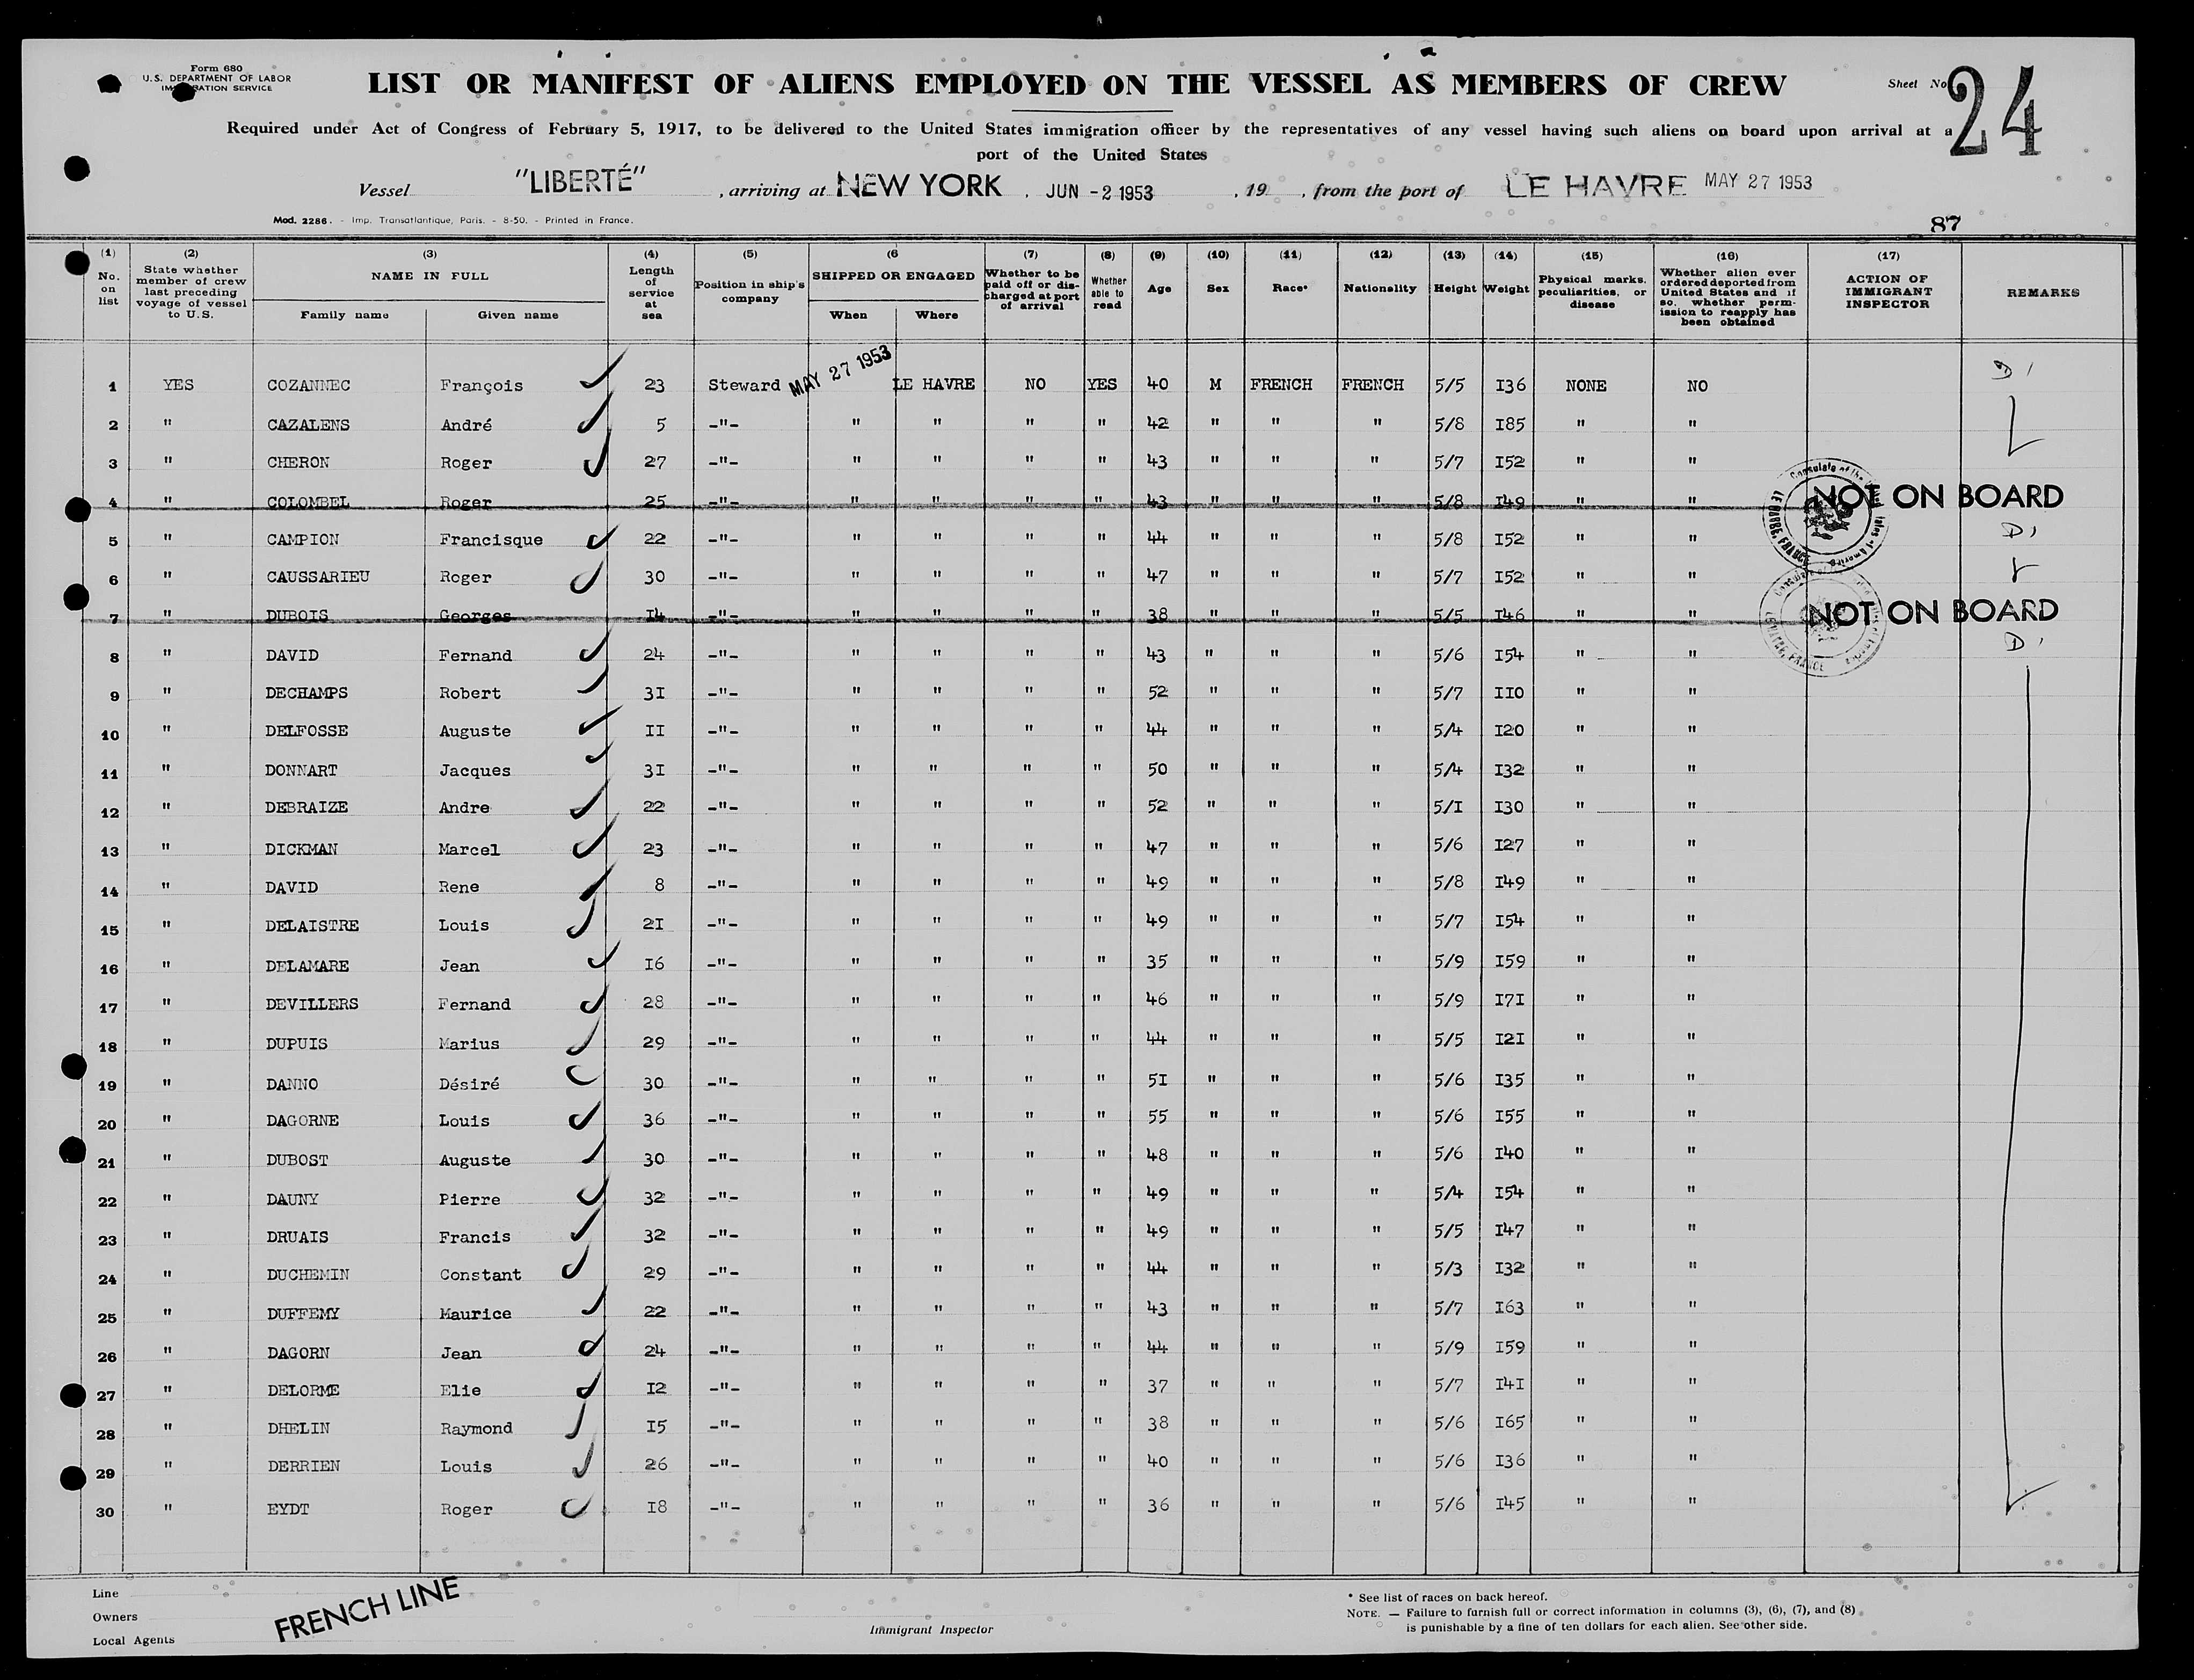 Form 680
U.S. DEPARTMENT OF LABOR
IMMIGRATION SERVICE
LIST OR MANIFEST OF ALIENS EMPLOYED ON THE VESSEL AS MEMBERS OF CREW
Sheet No 24
Required under Act of Congress of February 5, 1917, to be delivered to the United States immigration officer by the representatives of any vessel having such aliens on board upon arrival at a
port of the United States
Vessel "LIBERTÉ" , arriving at NEW YORK , JUN -2 1953 , 19 , from the port of LE HAVRE MAY 27 1953
Mod. 2286. - Imp. Transatlantique, Paris. - 8-50. - Printed in France.
87
(1) No. on list (2) State whether member of crew last preceding voyage of vessel to U.S. (3) NAME IN FULL Family name Given name (4) Length of service at sea (5) Position in ship's company (6 SHIPPED OR ENGAGED When Where (7) Whether to be paid off or discharged at port of arrival (8) Whether able to read (9) Age (10) Sex (11) Race* (12) Nationality (13) Height (14) Weight (15) Physical marks, peculiarities, or disease (16) Whether alien ever ordered deported from United States and if so, whether permission to reapply has been obtained (17) ACTION OF IMMIGRANT INSPECTOR REMARKS
1 YES COZANNEC François 23 Steward MAY 27 1953 LE HAVRE NO YES 40 M FRENCH FRENCH 5/5 I36 NONE NO D1
2 " CAZALENS André 5 -"- " " " " 42 " " " 5/8 I85 " "
3 " CHERON Roger 27 -"- " " " " 43 " " " 5/7 I52 " "
4 " COLOMBEL Roger 25 -"- " " " " 43 " " " 5/8 I49 " " NOT ON BOARD
5 " CAMPION Francisque 22 -"- " " " " 44 " " " 5/8 I52 " " D1
6 " CAUSSARIEU Roger 30 -"- " " " " 47 " " " 5/7 I52 " "
7 " DUBOIS Georges I4 -"- " " " " 38 " " " 5/5 I46 " " NOT ON BOARD
8 " DAVID Fernand 24 -"- " " " " 43 " " " 5/6 I54 " " D1
9 " DECHAMPS Robert 3I -"- " " " " 52 " " " 5/7 II0 " "
10 " DELFOSSE Auguste II -"- " " " " 44 " " " 5/4 I20 " "
11 " DONNART Jacques 3I -"- " " " " 50 " " " 5/4 I32 " "
12 " DEBRAIZE Andre 22 -"- " " " " 52 " " " 5/I I30 " "
13 " DICKMAN Marcel 23 -"- " " " " 47 " " " 5/6 I27 " "
14 " DAVID Rene 8 -"- " " " " 49 " " " 5/8 I49 " "
15 " DELAISTRE Louis 2I -"- " " " " 49 " " " 5/7 I54 " "
16 " DELAMARE Jean I6 -"- " " " " 35 " " " 5/9 I59 " "
17 " DEVILLERS Fernand 28 -"- " " " " 46 " " " 5/9 I7I " "
18 " DUPUIS Marius 29 -"- " " " " 44 " " " 5/5 I2I " "
19 " DANNO Désiré 30 -"- " " " " 5I " " " 5/6 I35 " "
20 " DAGORNE Louis 36 -"- " " " " 55 " " " 5/6 I55 " "
21 " DUBOST Auguste 30 -"- " " " " 48 " " " 5/6 I40 " "
22 " DAUNY Pierre 32 -"- " " " " 49 " " " 5/4 I54 " "
23 " DRUAIS Francis 32 -"- " " " " 49 " " " 5/5 I47 " "
24 " DUCHEMIN Constant 29 -"- " " " " 44 " " " 5/3 I32 " "
25 " DUFFEMY Maurice 22 -"- " " " " 43 " " " 5/7 I63 " "
26 " DAGORN Jean 24 -"- " " " " 44 " " " 5/9 I59 " "
27 " DELORME Elie I2 -"- " " " " 37 " " " 5/7 I4I " "
28 " DHELIN Raymond I5 -"- " " " " 38 " " " 5/6 I65 " "
29 " DERRIEN Louis 26 -"- " " " " 40 " " " 5/6 I36 " "
30 " EYDT Roger I8 -"- " " " " 36 " " " 5/6 I45 " "
Line
Owners
Local Agents
FRENCH LINE
Immigrant Inspector
* See list of races on back hereof.
NOTE. — Failure to furnish full or correct information in columns (3), (6), (7), and (8)
is punishable by a fine of ten dollars for each alien. See other side.